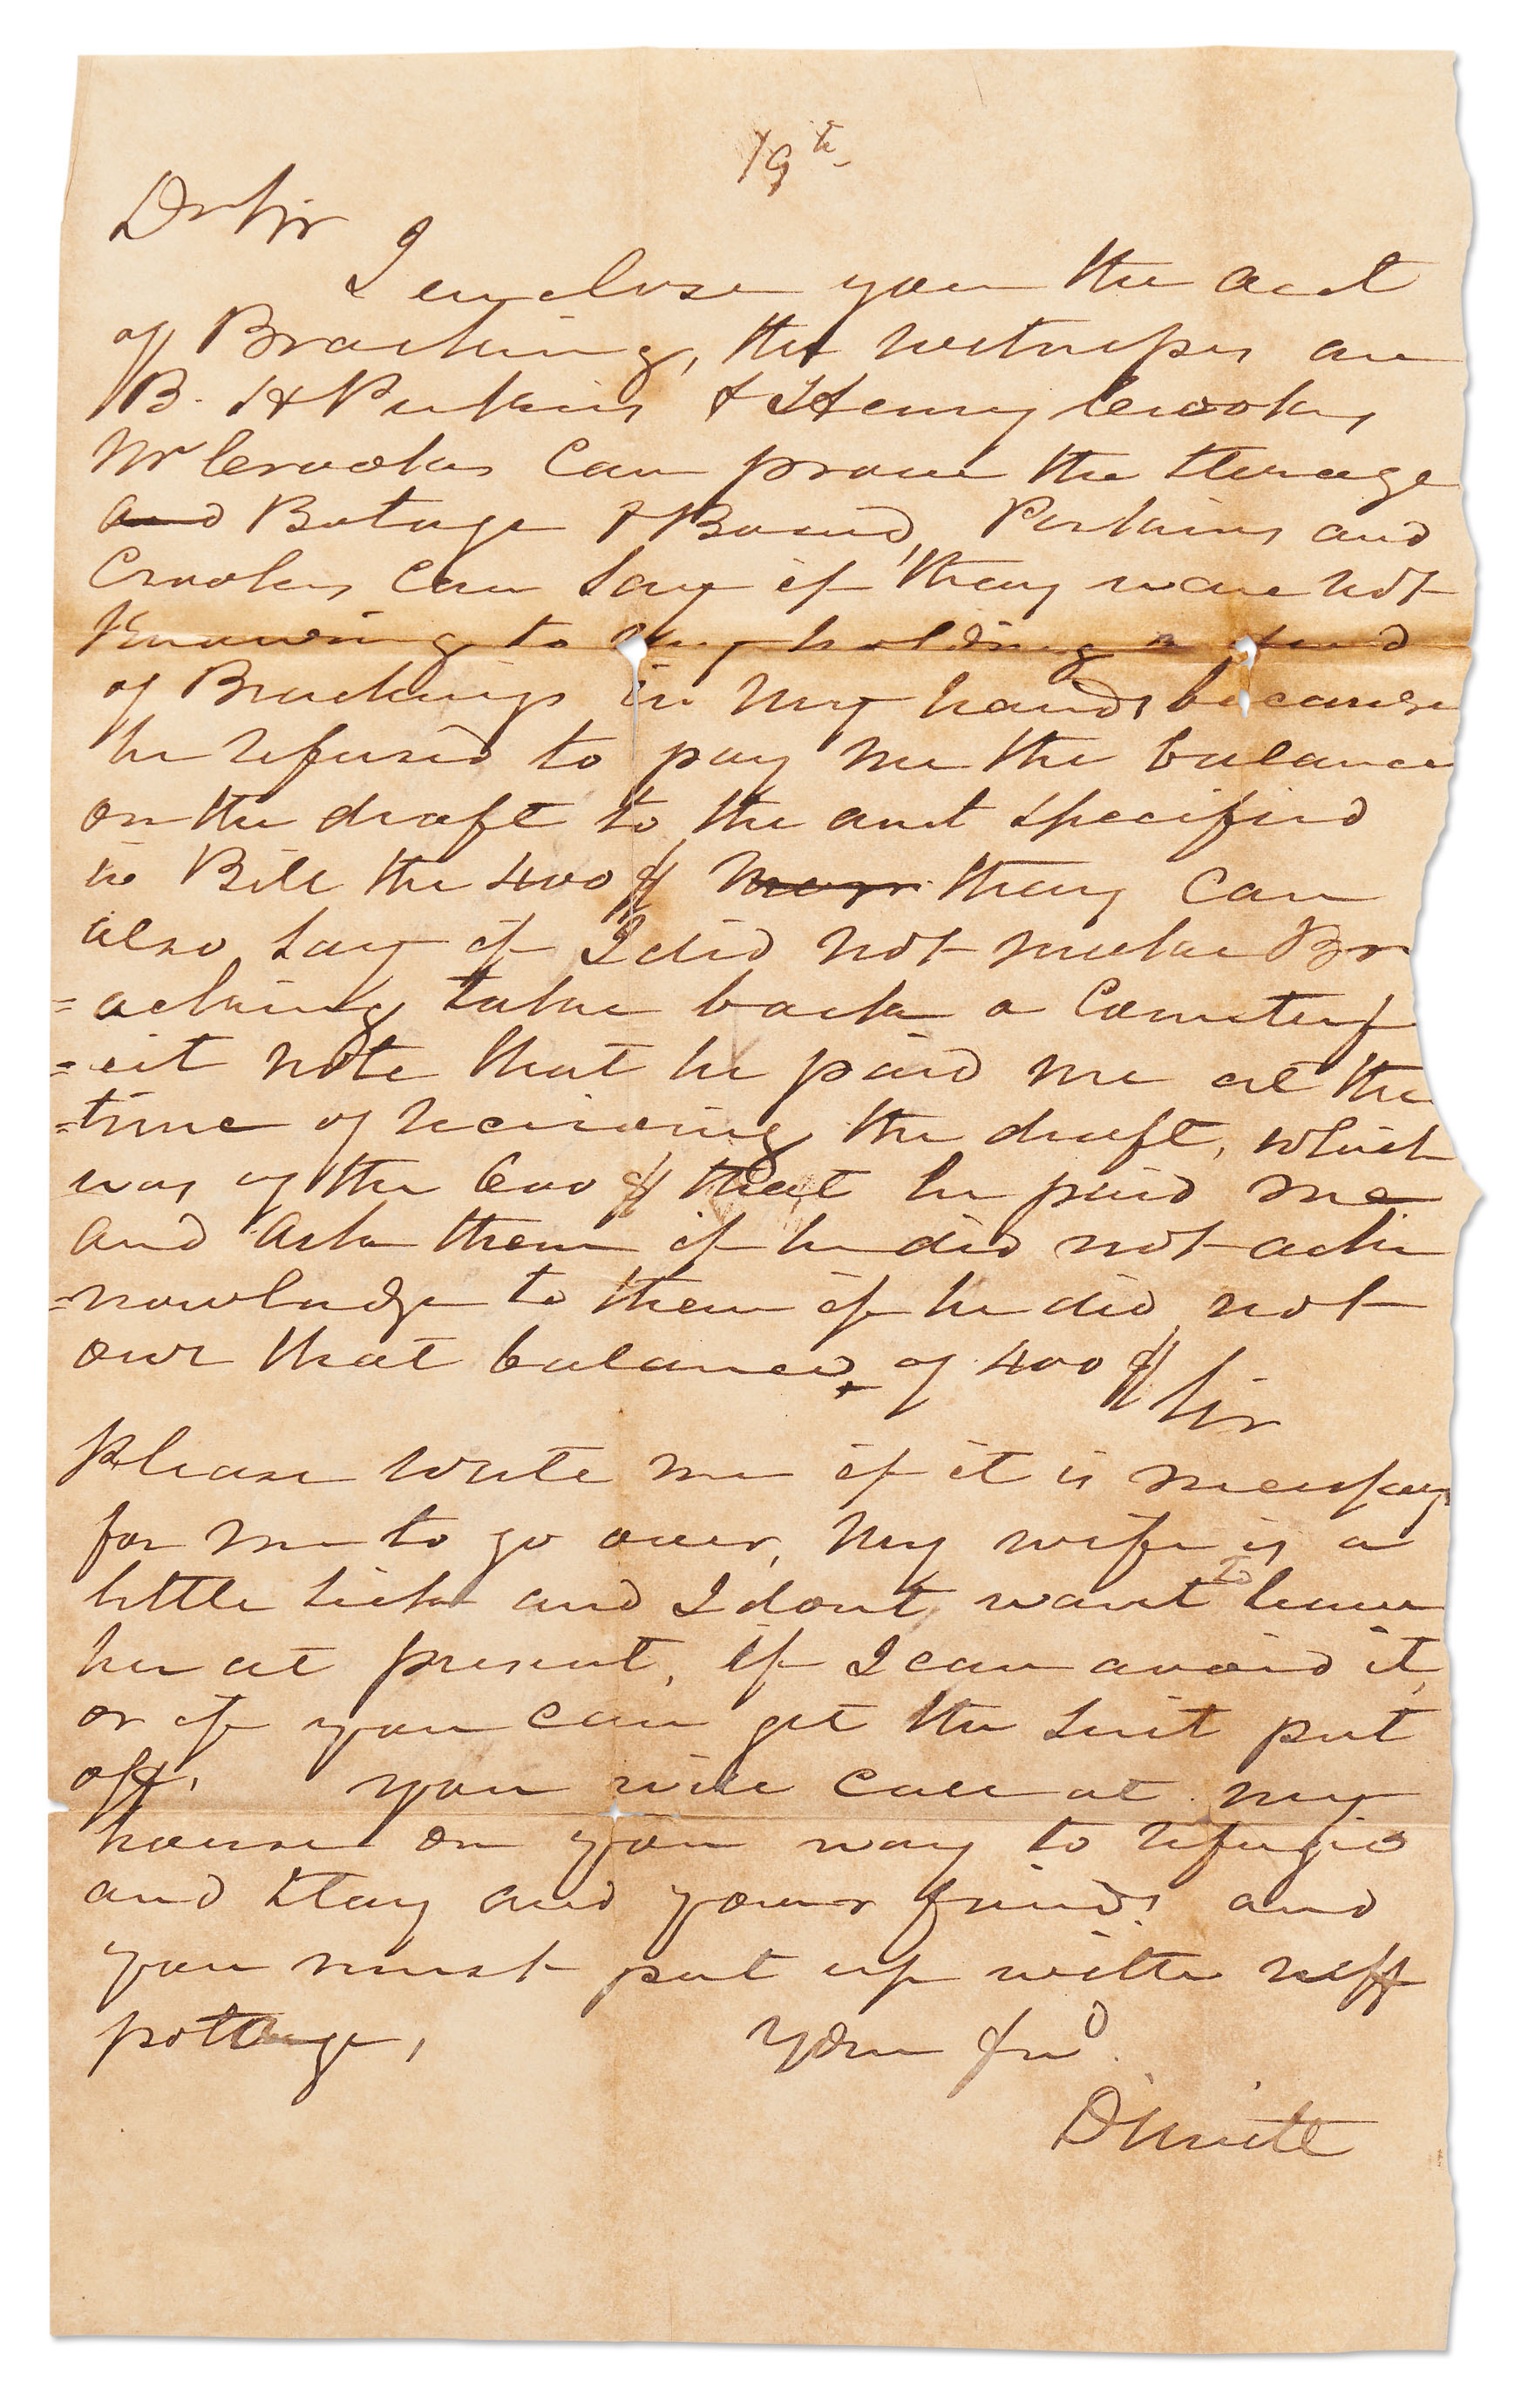 19th
Dr Sir
I enclose you the acct
of Bracking, the witnesses are
B. H Perkins & Henry Crooks,
Mr Crooks Can prove the Storage
and Botage & Board, Perkins and
Crooks, Can Say if thay ware not
Knowing to my holding a
of Brackings in my hands because
he refused to pay me the balance
on the draft to the amt Specified
in Bill the 400$ thay Can
also Say if I did not make Br
=acking take back a Counterf
=eit note that he paid me at the
=time of receiving the draft, which
was of the 600$ that he paid me
and Ask them if he did not ack
=nowladge to them if he did not
owe that balance, of 400$ Sir
Please write me if it is necessary
for me to go over, My wife is a
little Sick and I dont want to leave
her at present, if I can avoid it,
or if you can get the Suit put
off, you will call at my
house on you way to refugio
and Stay and your friends and
you must put up with
pottage,
Your frd.
Dimitt